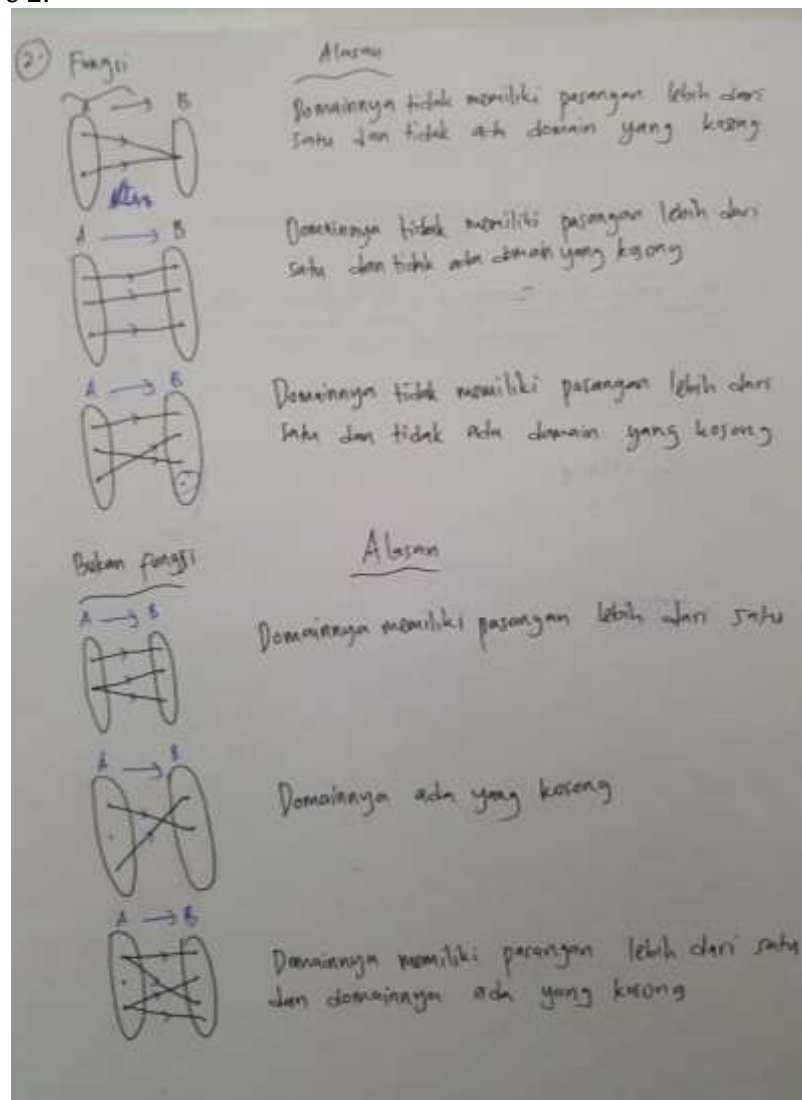 2.
② Fungsi
Alasan
A → B
Domainnya tidak memiliki pasangan lebih dari
satu dan tidak ada domain yang kosong
A → B
Domainnya tidak memiliki pasangan lebih dari
satu dan tidak ada domain yang kosong
A → B
Domainnya tidak memiliki pasangan lebih dari
satu dan tidak ada domain yang kosong
Bukan fungsi
Alasan
A → B
Domainnya memiliki pasangan lebih dari satu
A → B
Domainnya ada yang kosong
A → B
Domainnya memiliki pasangan lebih dari satu
dan domainnya ada yang kosong